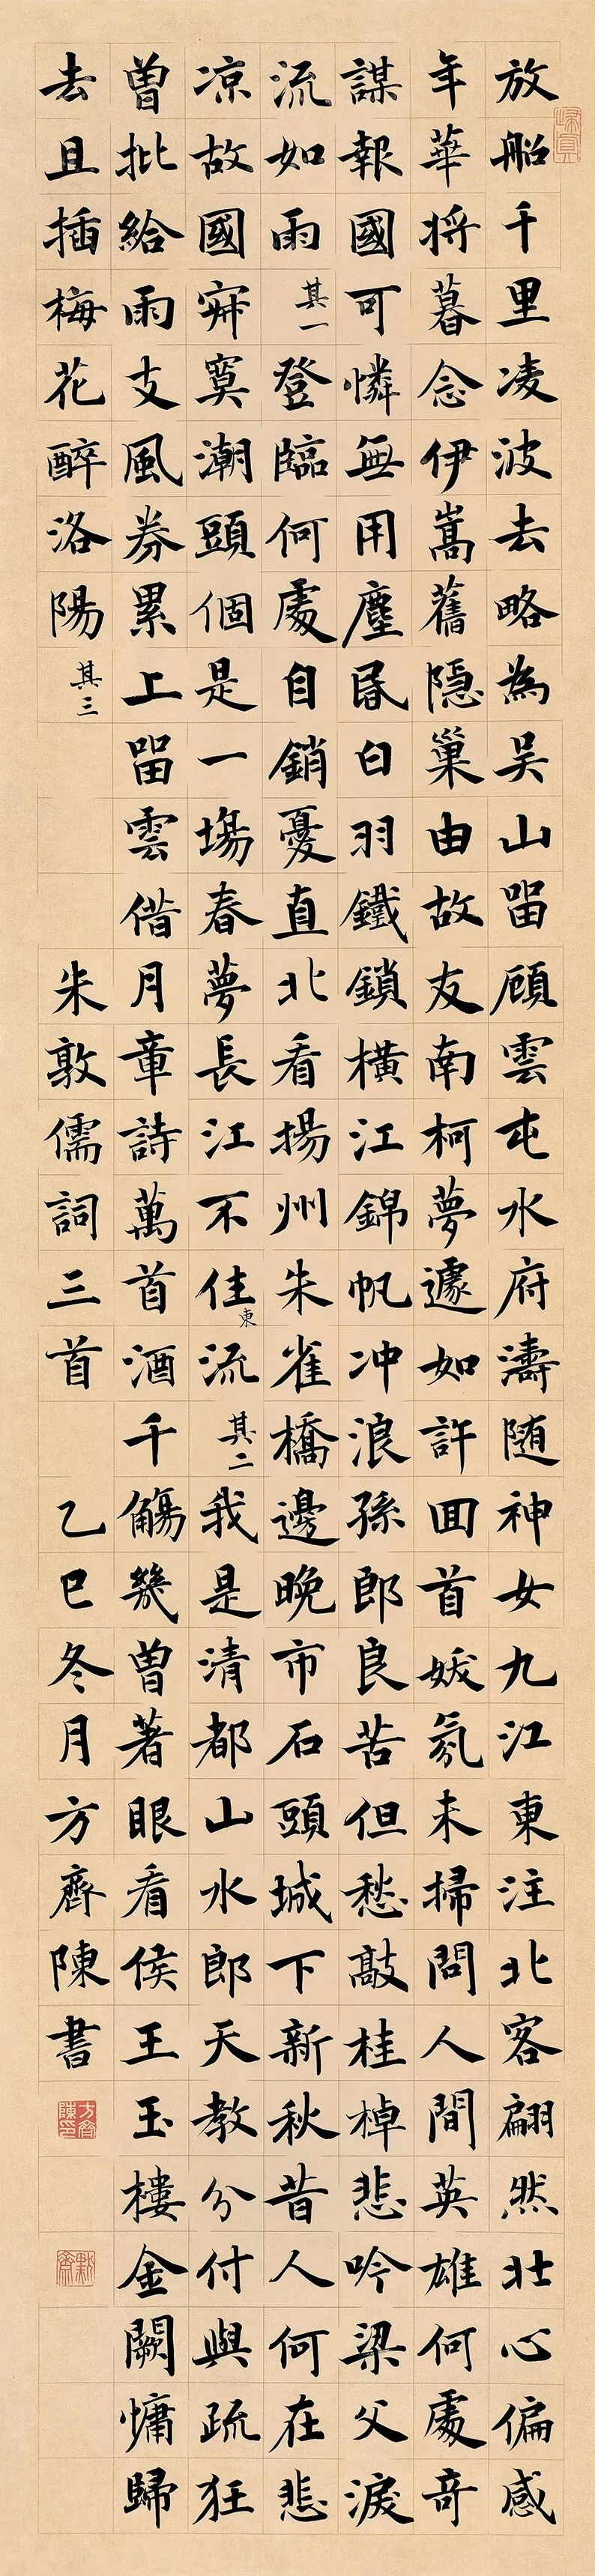 放船千里凌波去略為吳山留顧雲屯水府濤随神女九江東注北客翩然壯心偏感
年華将暮念伊嵩舊隱巢由故友南柯夢遽如許囬首妖氛未掃問人間英雄何處奇
謀報國可憐無用塵昏白羽鐵鎖橫江錦帆冲浪孫郎良苦但愁敲桂棹悲吟梁父淚
流如雨 其一 登臨何處自銷憂直北看揚州朱雀橋邊晚市石頭城下新秋昔人何在悲
凉故國寂寞潮頭個是一場春夢長江不住東流 其二 我是清都山水郎天教分付與疏狂
曾批給雨支風券累上留雲借月章詩萬首酒千觴幾曾著眼看侯王玉樓金闕慵歸
去且插梅花醉洛陽 其三 朱敦儒詞三首 乙巳冬月方齊陳書